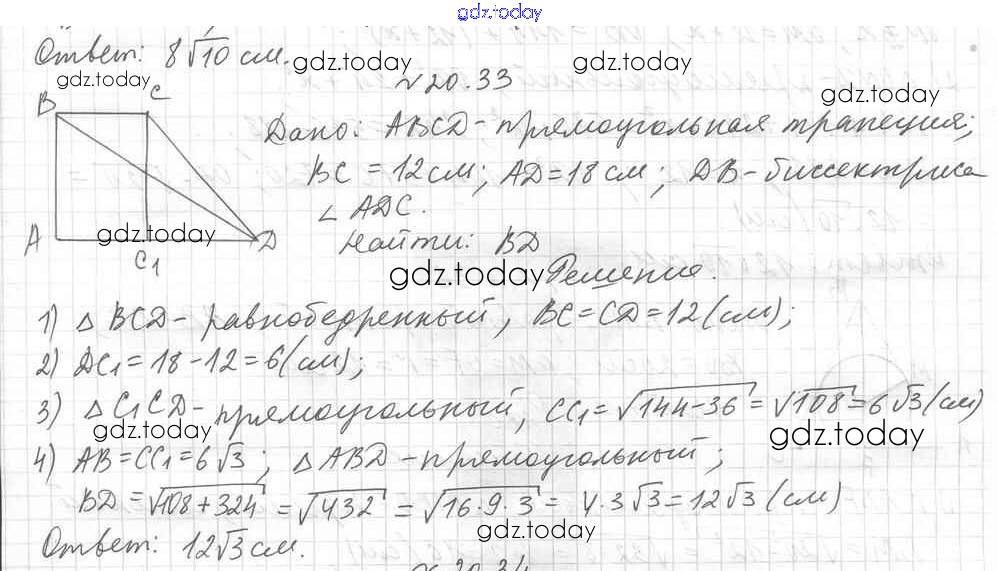 gdz.today
Ответ: 8√10 см.
gdz.today
gdz.today
№20.33
gdz.today
B C
Дано: ABCD - прямоугольная трапеция;
BC = 12 см; AD = 18 см; DB - биссектриса
∠ ADC.
A gdz.today D
C₁
Найти: BD
gdz.today
Решение.
1) △ BCD - равнобедренный, BC = CD = 12 (см);
2) DC₁ = 18 - 12 = 6 (см);
3) △ C₁CD - прямоугольный, CC₁ = √144-36 = √108 = 6√3 (см)
gdz.today
gdz.today
4) AB = CC₁ = 6√3; △ ABD - прямоугольный;
BD = √108+324 = √432 = √16·9·3 = 4·3√3 = 12√3 (см)
gdz.today
Ответ: 12√3 см.